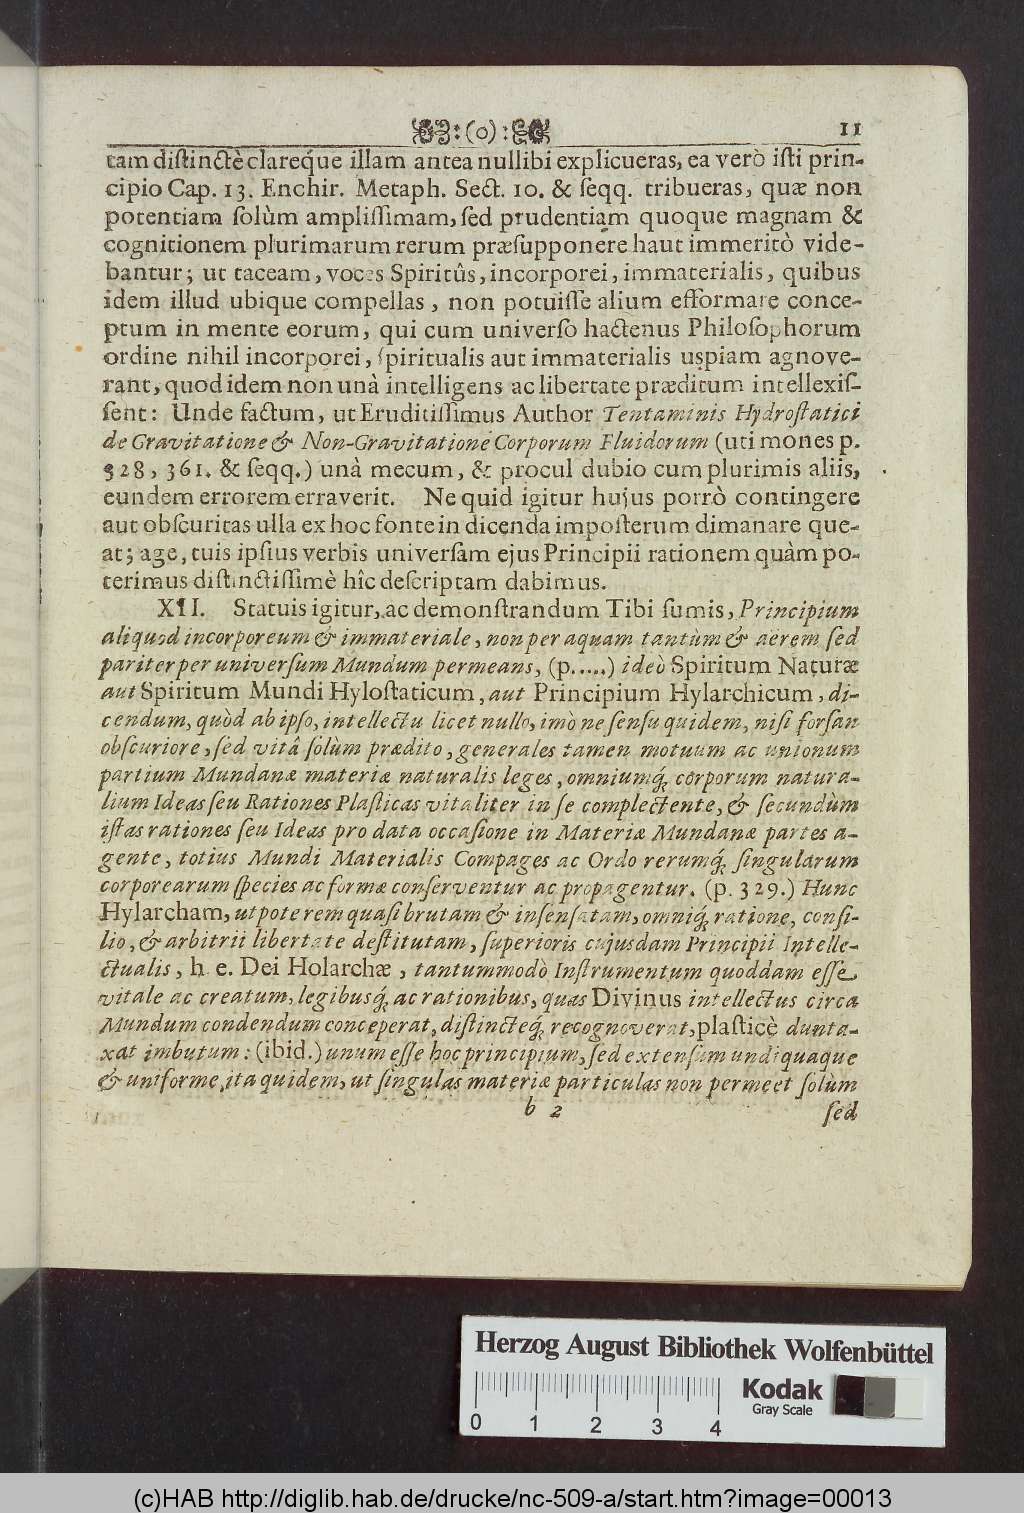 :(0): 11
tam distinctè clareq́ue illam antea nullibi explicueras, ea verò isti prin-
cipio Cap. 13. Enchir. Metaph. Sect. 10. & seqq. tribueras, quæ non
potentiam solùm amplissimam, sed prudentiam quoque magnam &
cognitionem plurimarum rerum præsupponere haut immeritò vide-
bantur; ut taceam, voces Spiritûs, incorporei, immaterialis, quibus
idem illud ubique compellas, non potuisse alium efformare conce-
ptum in mente eorum, qui cum universo hactenus Philosophorum
ordine nihil incorporei, spiritualis aut immaterialis uspiam agnove-
rant, quod idem non unà intelligens ac libertate præditum intellexis-
sent: Unde factum, ut Eruditissimus Author Tentaminis Hydrostatici
de Gravitatione & Non-Gravitatione Corporum Fluidorum (uti mones p.
328, 361. & seqq.) unà mecum, & procul dubio cum plurimis aliis,
eundem errorem erraverit. Ne quid igitur hujus porrò contingere
aut obscuritas ulla ex hoc fonte in dicenda imposterum dimanare que-
at; age, tuis ipsius verbis universam ejus Principii rationem quàm po-
terimus distinctissimè hîc descriptam dabimus.
XII. Statuis igitur, ac demonstrandum Tibi sumis, Principium
aliquod incorporeum & immateriale, non per aquam tantùm & aërem sed
pariter per universum Mundum permeans, (p.....) ideò Spiritum Naturæ
aut Spiritum Mundi Hylostaticum, aut Principium Hylarchicum, di-
cendum, quòd ab ipso, intellectu licet nullo, imò ne sensu quidem, nisi forsan
obscuriore, sed vitâ solùm prædito, generales tamen motuum ac unionum
partium Mundanæ materiæ naturalis leges, omniumq́; corporum natura-
lium Ideas seu Rationes Plasticas vitaliter in se complectente, & secundùm
istas rationes seu Ideas pro data occasione in Materiæ Mundanæ partes a-
gente, totius Mundi Materialis Compages ac Ordo rerumq́; singularum
corporearum species ac formæ conserventur ac propagentur. (p. 329.) Hunc
Hylarcham, utpote rem quasi brutam & insensatam, omniq́; ratione, consi-
lio, & arbitrii libertate destitutam, superioris cujusdam Principii Intelle-
ctualis, h. e. Dei Holarchæ, tantummodò Instrumentum quoddam esse
vitale ac creatum, legibusq́; ac rationibus, quas Divinus intellectus circa
Mundum condendum conceperat, distincteq́; recognoverat, plasticè dunta-
xat imbutum: (ibid.) unum esse hoc principium, sed extensum undiquaque
& uniforme, ita quidem, ut singulas materiæ particulas non permeet solùm
b 2 sed
Herzog August Bibliothek Wolfenbüttel
Kodak
Gray Scale
0 1 2 3 4
(c)HAB http://diglib.hab.de/drucke/nc-509-a/start.htm?image=00013